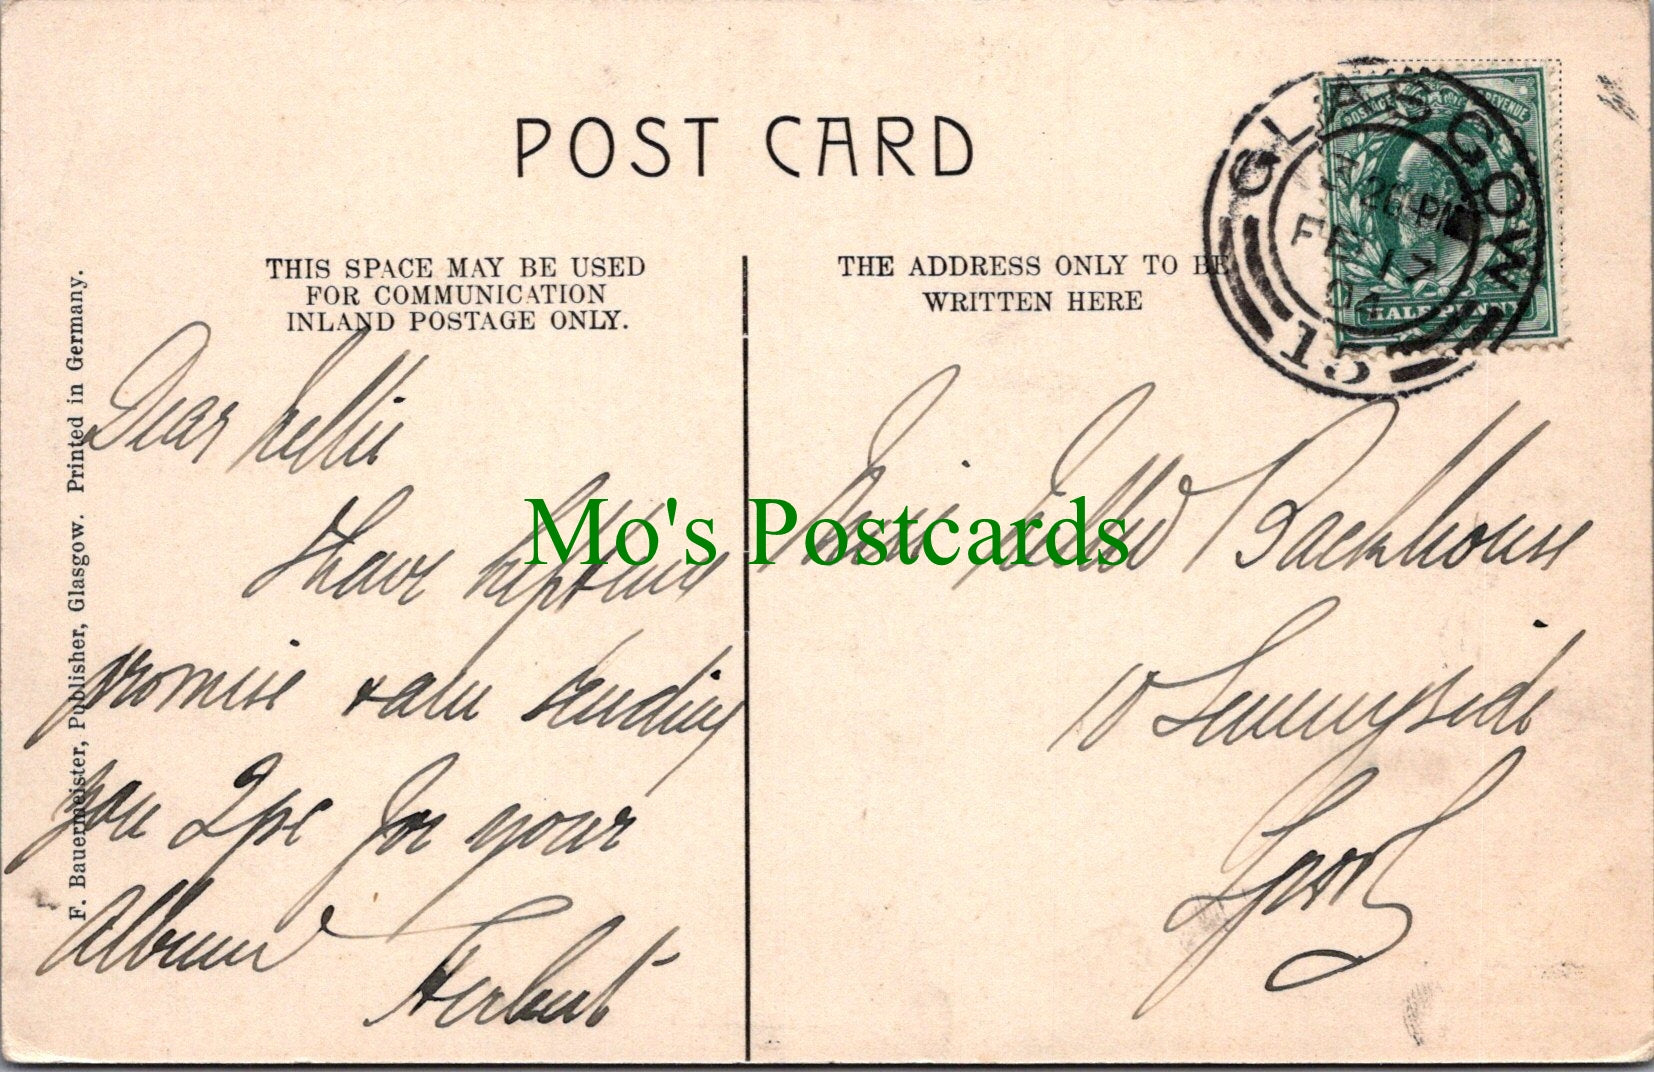 POST CARD
THIS SPACE MAY BE USED
FOR COMMUNICATION
INLAND POSTAGE ONLY.
THE ADDRESS ONLY TO BE
WRITTEN HERE
GLASGOW
26 PM
FE 17
04
15
POSTAGE REVENUE
HALFPENNY
F. Bauermeister, Publisher, Glasgow. Printed in Germany.
Dear Nellie
I have kept my
promise & am sending
you 2 pc for your
Album
Herbert
Miss Nellie Backhouse
10 Sunnyside
Mo's Postcards